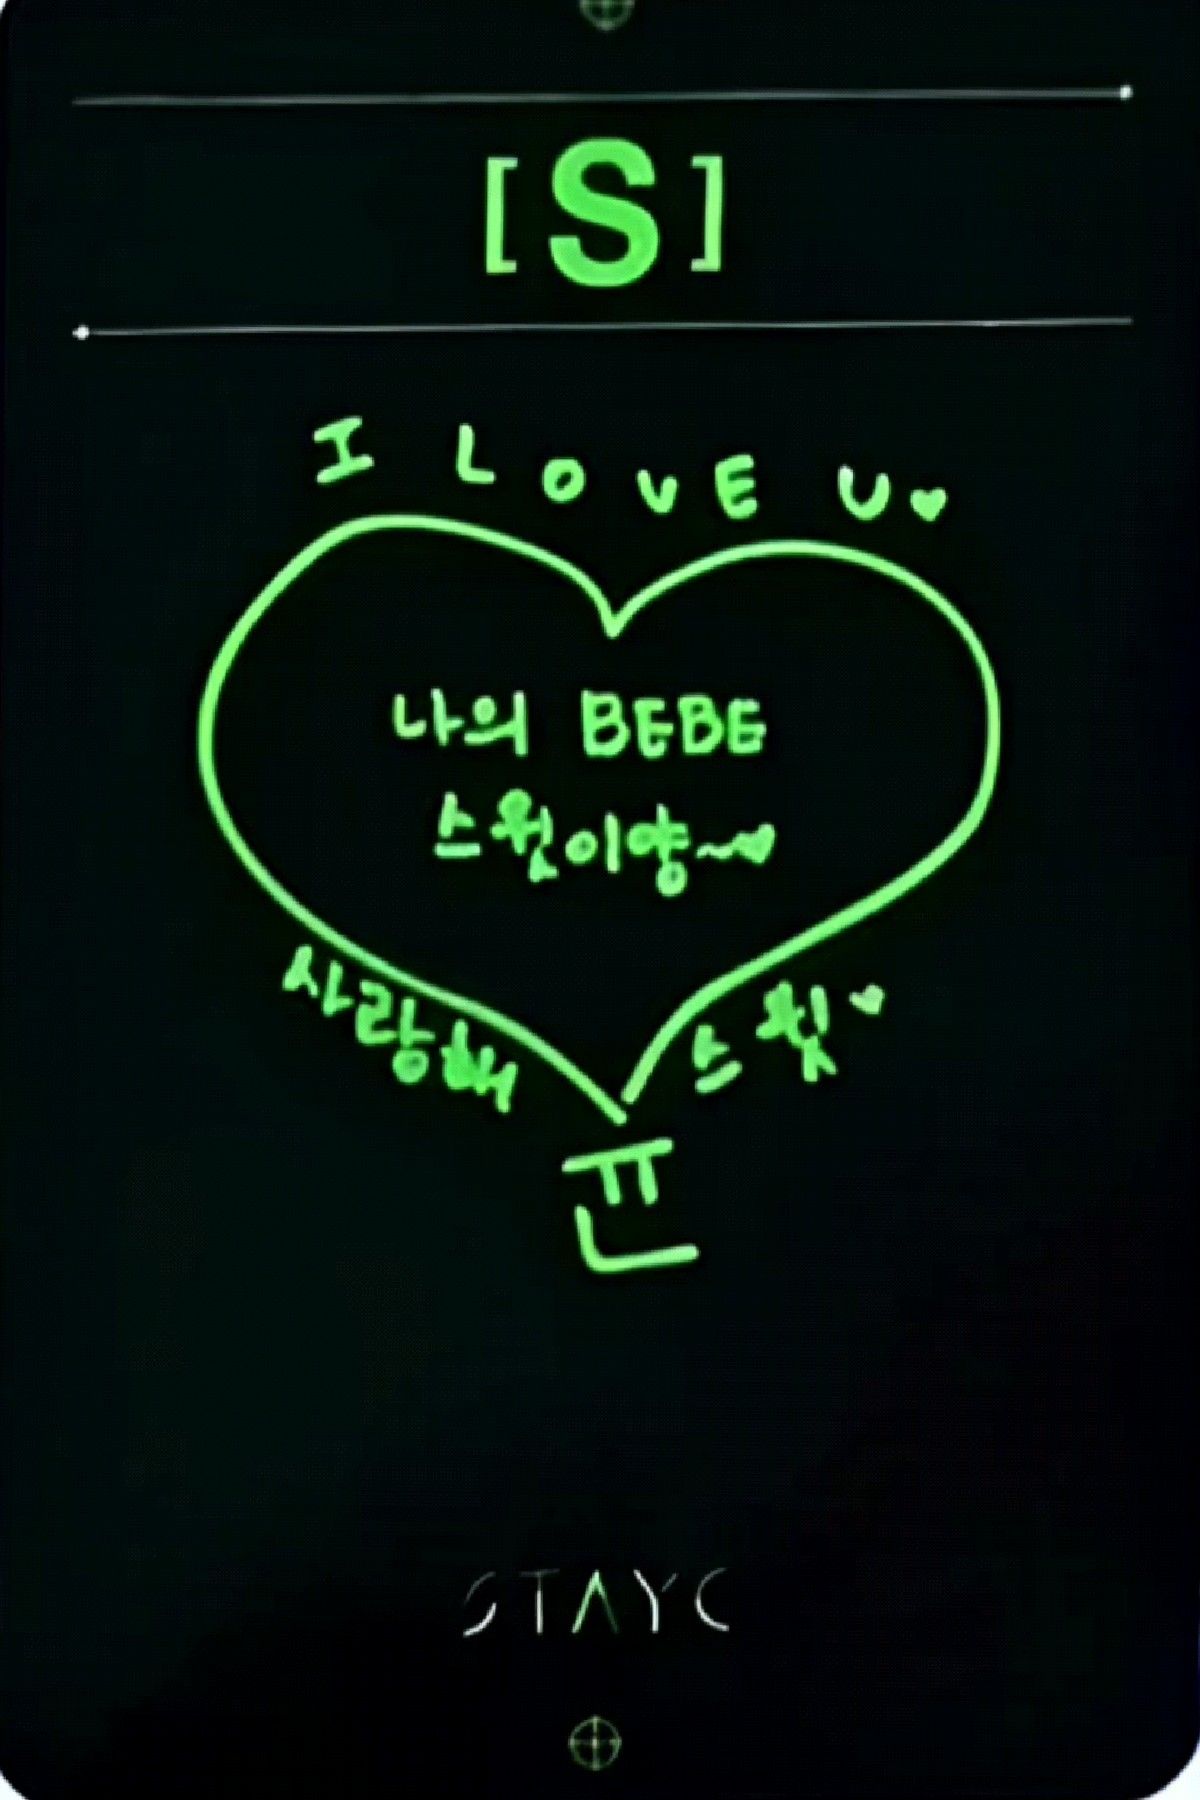 [S]
I LOVE U♥
나의 BEBE
스윗이양~♥
사랑해 스윗♥
뀬
STAYC